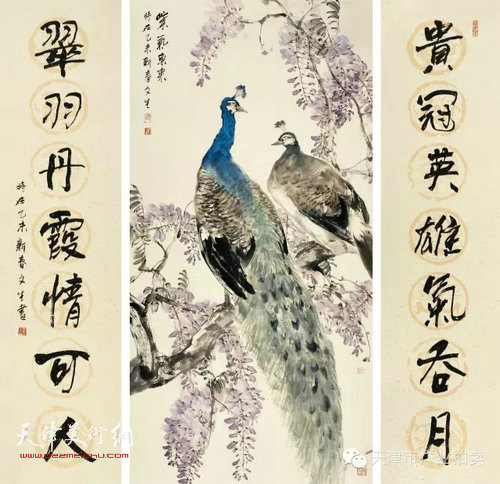 貴冠英雄氣吞月
紫氣東來
時在乙未新春文生
翠羽丹霞情可人
時在乙未新春文生書
天津美術網
www.022meishu.com
天津市产业拍卖